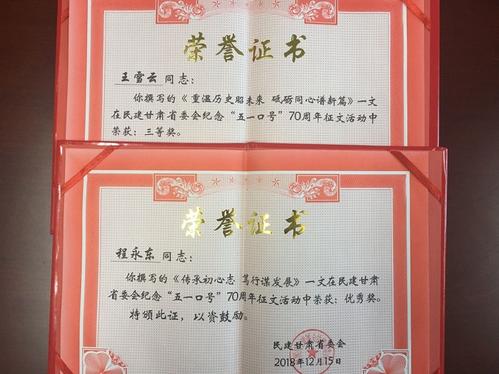 荣誉证书
王雪云同志：
你撰写的《重温历史昭未来 砥砺同心谱新篇》一文
在民建甘肃省委会纪念“五一口号”70周年征文活动中
荣获：三等奖。
荣誉证书
程永东同志：
你撰写的《传承初心志 笃行谋发展》一文在民建甘肃
省委会纪念“五一口号”70周年征文活动中荣获：优秀奖。
特颁此证，以资鼓励。
民建甘肃省委会
2018年12月15日